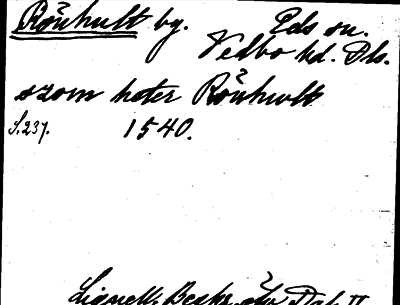 Rönhult by. Eds sn.
Vedbo hd. Dls.
szom heter Rönhult
S.237. 1540.
Lignell, Beskr. öfv. Dal. II